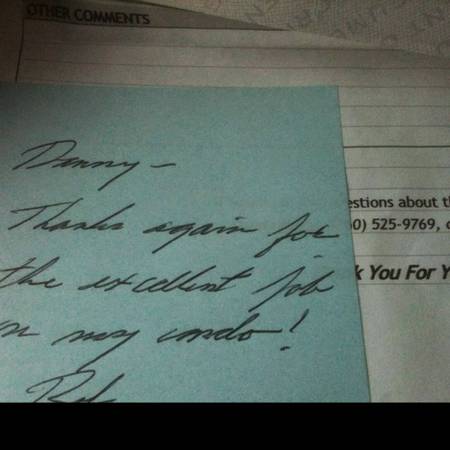 OTHER COMMENTS
Danny-
Thanks again for
the excellent job
on my condo!
Rob
estions about t
0) 525-9769,
k You For Y